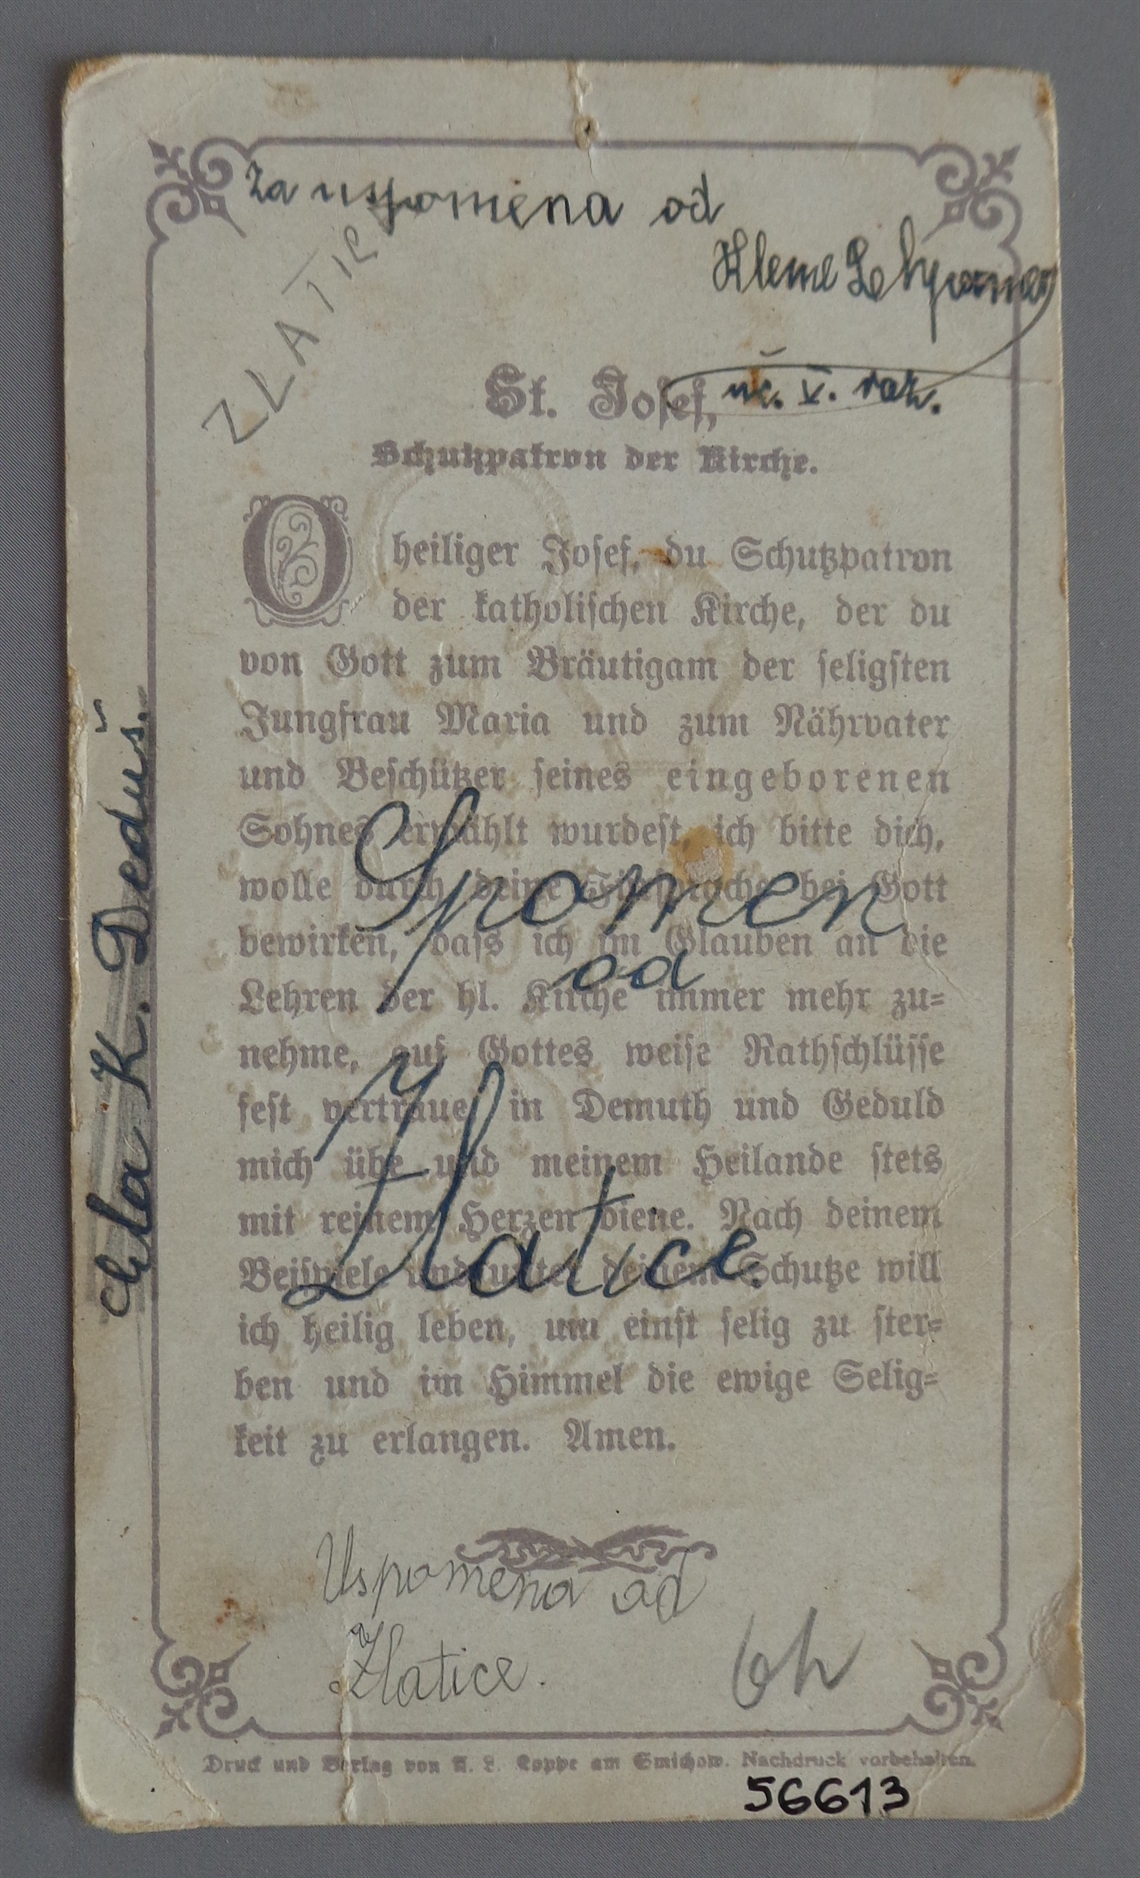 Za uspomena od
ZLATIC
uč. V. raz.
St. Josef,
Schutzpatron der Kirche.
O heiliger Josef, du Schutzpatron
der katholischen Kirche, der du
von Gott zum Bräutigam der seligsten
Jungfrau Maria und zum Nährvater
und Beschützer seines eingeborenen
Sohnes erwählt wurdest, ich bitte dich,
wolle durch deine Fürsprache bei Gott
bewirken, dass ich im Glauben an die
Lehren der hl. Kirche immer mehr zu=
nehme, auf Gottes weise Rathschlüsse
fest vertraue, in Demuth und Geduld
mich übe und meinem Heilande stets
mit reinem Herzen diene. Nach deinem
Beispiele und unter deinem Schutze will
ich heilig leben, um einst selig zu ster=
ben und im Himmel die ewige Selig=
keit zu erlangen. Amen.
Spomen
od
Zlatice.
K. Deduš.
Uspomena od
Zlatice.
6h
Druck und Verlag von A. L. Koppe am Smichow. Nachdruck vorbehalten.
56613